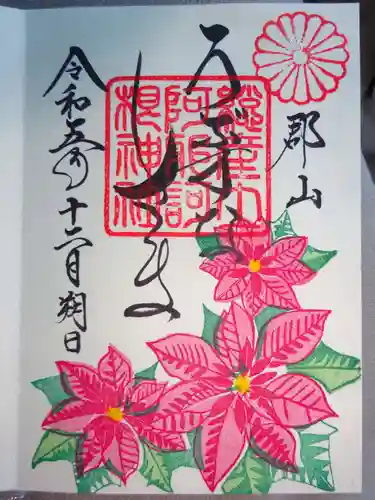 郡山
うぶすな
阿邪訶
根神社
令和五年十二月朔日